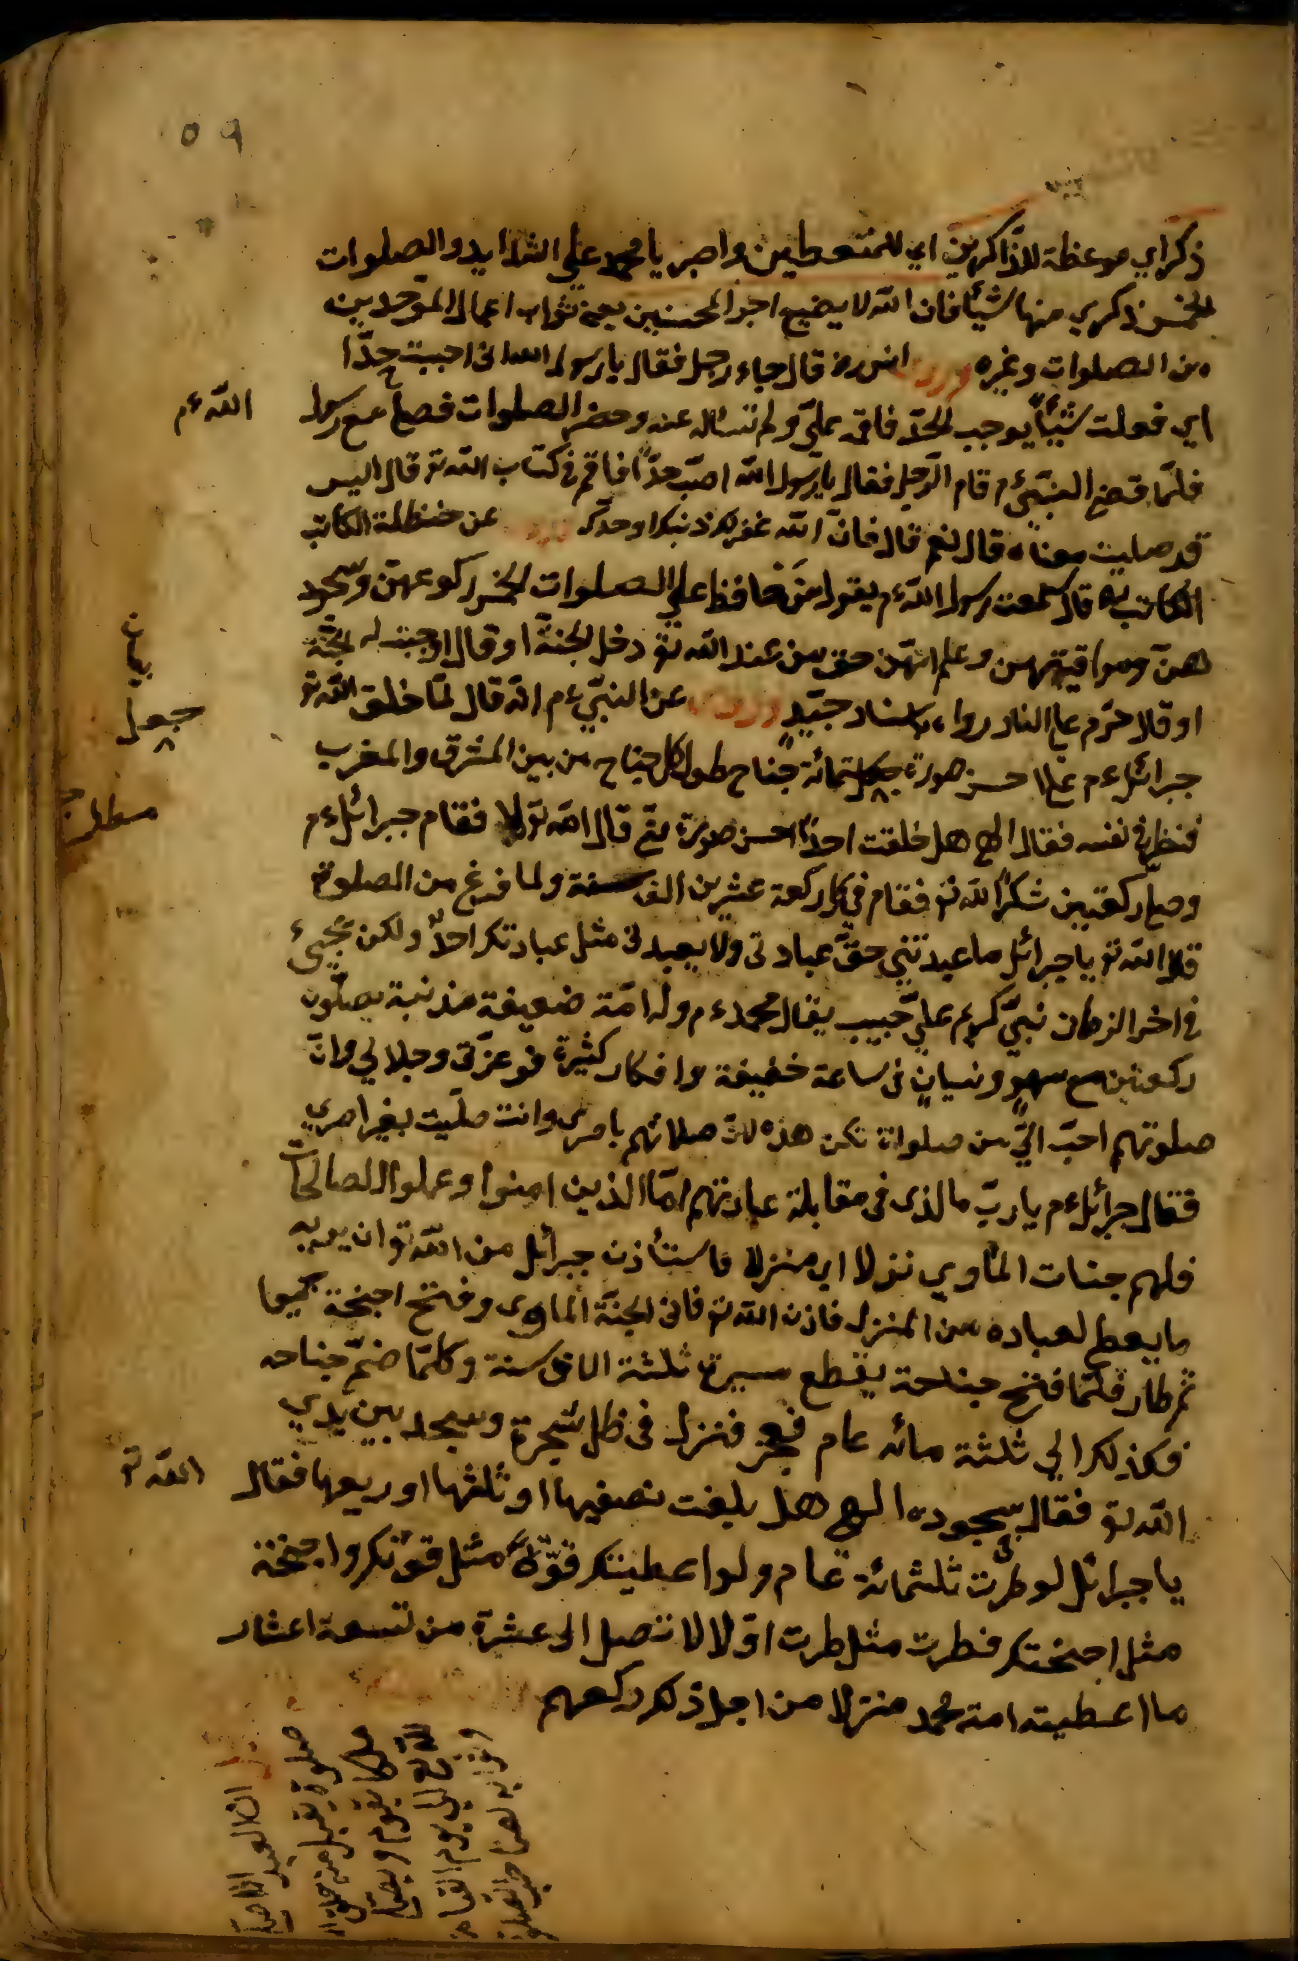 ٥٩
ذكراي موعظة للذاكرين اي للمتعظين واصبر يا محمد علي الشدايد والصلوات
الخمس ذكري منها شيئا فان الله لا يضيع اجر المحسنين يعني ثواب اعمال الموحدين
من الصلوات وغيره وروي انس رض قال جاء رجل فقال يا رسول الله انى احببت حدّا
اي فعلت شيئاً يوجب الحدّ فاقمه عليّ ولم تسئال عنه وحضر الصلوات فصلي مع رسول الله ءم
فلمّا قضي النبيّ ءم قام الرّجل فقال يا رسول الله اصبت حدّاً فاقم في كتاب الله تو قال اليس
قد صليت معناه قال نعم قال فانّ الله غفر لك ذنبك او حدك عن حنظلة الكاتب
الكاتب رض قال سمعت رسول الله ءم يقول من حافظ علي الصلوات الخمس ركوعهنّ وسجود
هنّ ومواقيتهن وعلم انهّن حق من عند الله تو دخل الجنة او قال اوجبت له الجنّة
او قال حرّم علي النار رواه باسناد جيّد وروي عن النبيّ ءم انه قال لمّا خلق الله تو
جبرائل ءم علي احسن صورة ستمائة جناح طول كل جناح من بين المشرق والمغرب
جعل
فنظر في نفسه فقال الهي هل خلقت احداً احسن صورة منّي قال الله تو لا فقام جبرائل ءم
وصلي ركعتين شكراً لله تو فقام في كل ركعة عشرين الف سنة ولما فرغ من الصلوة
قال الله تو يا جبرائل ما عبدتني حقّ عبادتى ولا يعبدنى مثل عبادتك احدٌ ولكن يجيئ
في اخر الزمان نبيّ كريم عليّ حبيب يقال محمد ءم وله امّة ضعيفة مذنبة يصلّون
ركعتين مع سهوٍ ونسيانٍ فى ساعة خفيفة وافكار كثيرة فو عزّتى وجلالي وانّ
صلوتهم احبّ اليّ من صلواتك هذه لانّ صلاتهم بامرى وانت صلّيت بغير امري
فقال جبرائل ءم يا ربّ ما لذى فى مقابلة عبادتهم امّا الذين امنوا وعملوا الصالحات
فلهم جنات المأوي نزلا اي منزلا فاستأذن جبرائل من الله تو ان يريه
ما يعطي لعباده من المنزل فاذن الله تو فاتى الجنّة المأوى وفتح اجنحة جميعا
ثم طار فكلّما فتح جناحة يقطع مسيرة ثلثة الاف سنة وكلّما ضمّ جناحه
فكذلك الي ثلثة مائه عام فعجز فنزل فى ظل شجرة وسجد بين يدي
الله تو فقال بسجوده الهي هل بلغت نصفيها او ثلثها او ربعها فقال الله تو
يا جبرائل لو طرت ثلثمائة عام ولو اعطيتك قوّةً مثل قوتك واجنحة
مثل اجنحتك فطرت مثل طرت اوّلا لا تصل الى عشرة من تسعة اعشار
ما اعطيته امة محمد منزلا من اجل ذلك ركعهم